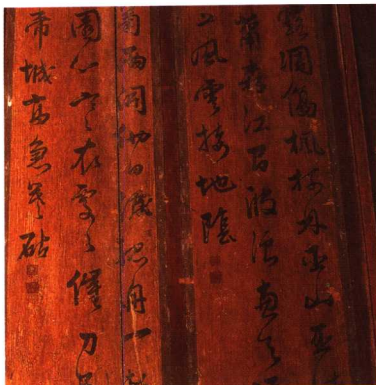 露凋傷楓樹林巫山巫
蕭森江間波浪兼天
上風雲接地陰
菊兩開他日淚孤舟一
園心寒衣處々催刀尺
帝城高急暮砧